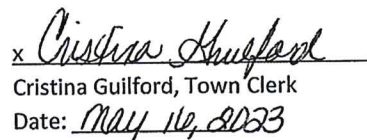 x Cristina Guilford
Cristina Guilford, Town Clerk
Date: May 16, 2023